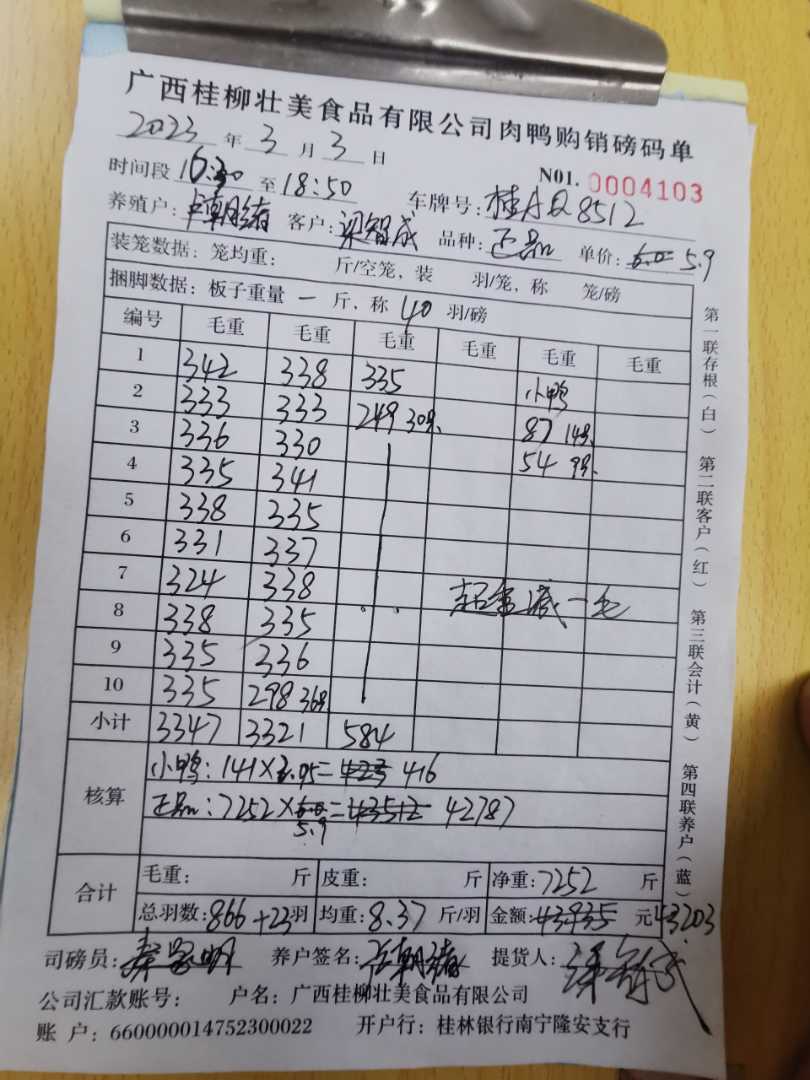 广西桂柳壮美食品有限公司肉鸭购销磅码单
2023年3月3日
时间段16:30至18:50 N01. 0004103
养殖户:卢朝绪 客户:梁智成 车牌号:桂AQ8512
品种:正品 单价:6.0 5.9
装笼数据:笼均重: 斤/空笼,装 羽/笼,称 笼/磅
捆脚数据:板子重量 一 斤,称 40 羽/磅
编号 毛重 毛重 毛重 毛重 毛重 毛重
1 342 338 335 小鸭
2 333 333 249 30只 87 14只
3 336 330 54 9只
4 335 341
5 338 335
6 331 337
7 324 338 超重减一毛
8 338 335
9 335 336
10 335 298 36只
小计 3347 3321 584
核算
小鸭:141×2.95=423 416
正品:7252×6.0=43512 42787
5.9
合计
毛重: 斤 皮重: 斤 净重:7252 斤
总羽数:866+23羽 均重:8.37 斤/羽 金额:43935 元43203
司磅员: 养户签名:卢朝绪 提货人:梁智成
公司汇款账号: 户名:广西桂柳壮美食品有限公司
账 户:660000014752300022 开户行:桂林银行南宁隆安支行
第一联存根(白) 第二联客户(红) 第三联会计(黄) 第四联养户(蓝)